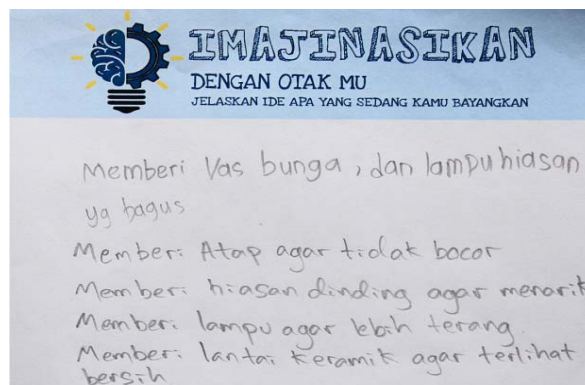 IMAJINASIKAN
DENGAN OTAK MU
JELASKAN IDE APA YANG SEDANG KAMU BAYANGKAN
Memberi Vas bunga, dan lampu hiasan
yg bagus
Memberi Atap agar tidak bocor
Memberi hiasan dinding agar menarik
Memberi lampu agar lebih terang.
Memberi lantai keramik agar terlihat
bersih